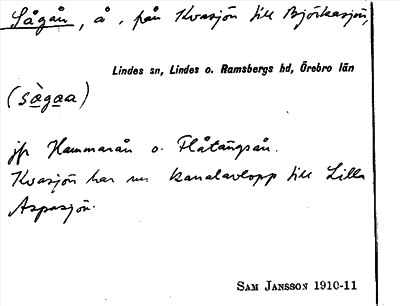 Sågån, å, från Kvasjön till Björkasjön,
Lindes sn, Lindes o. Ramsbergs hd, Örebro län
(sàgaa)
jfr Hammarån o. Flåtängsån.
Kvasjön har nu kanalavlopp till Lilla
Aspasjön.
SAM JANSSON 1910-11